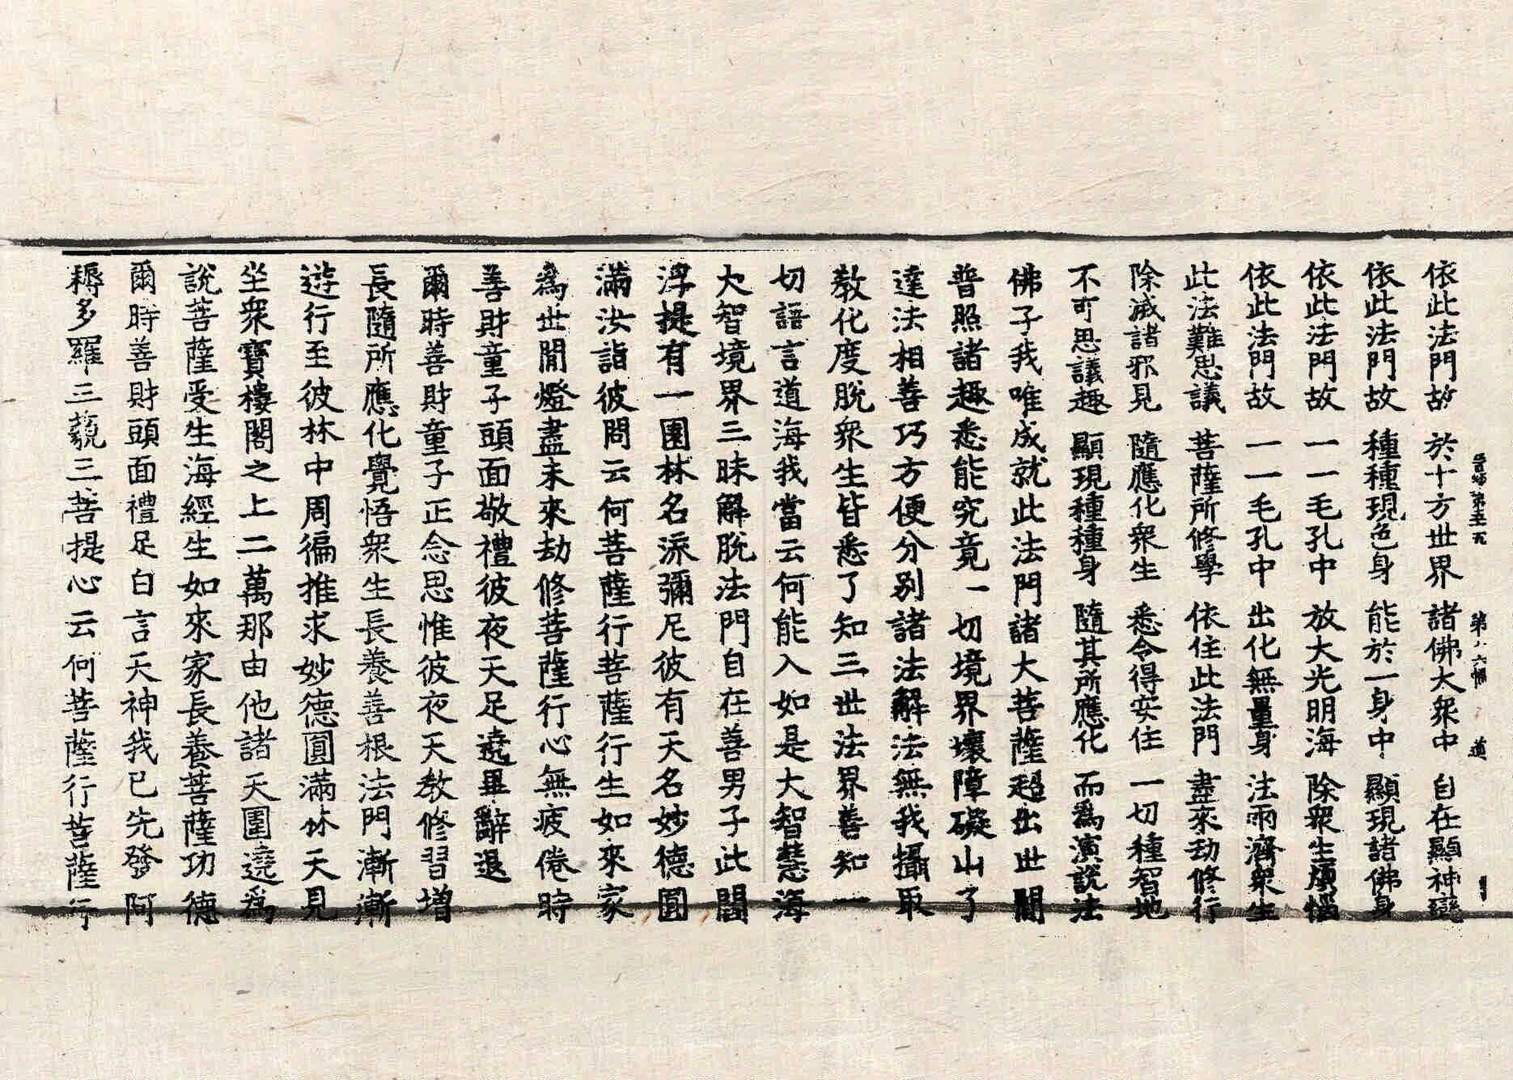 晉經第五五 第十六幅 道
依此法門故 於十方世界 諸佛大衆中 自在顯神變
依此法門故 種種現色身 能於一身中 顯現諸佛身
依此法門故 一一毛孔中 放大光明海 除衆生煩惱
依此法門故 一一毛孔中 出化無量身 法雨濟衆生
此法難思議 菩薩所修學 依住此法門 盡來劫修行
除滅諸邪見 隨應化衆生 悉令得安住 一切種智地
不可思議趣 顯現種種身 隨其所應化 而爲演說法
佛子我唯成就此法門諸大菩薩超出世間
普照諸趣悉能究竟一切境界壞障礙山了
達法相善巧方便分別諸法解法無我攝取
教化度脫衆生皆悉了知三世法界善知一
切語言道海我當云何能入如是大智慧海
大智境界三昧解脫法門自在善男子此閻
浮提有一園林名流彌尼彼有天名妙德圓
滿汝詣彼問云何菩薩行菩薩行生如來家
爲世間燈盡未來劫修菩薩行心無疲倦時
善財童子頭面敬禮彼夜天足遶畢辭退
爾時善財童子正念思惟彼夜天教修習增
長隨所應化覺悟衆生長養善根法門漸漸
遊行至彼林中周徧推求妙德圓滿林天見
坐衆寶樓閣之上二萬那由他諸天圍遶爲
說菩薩受生海經生如來家長養菩薩功德
爾時善財頭面禮足白言天神我已先發阿
耨多羅三藐三菩提心云何菩薩行菩薩行